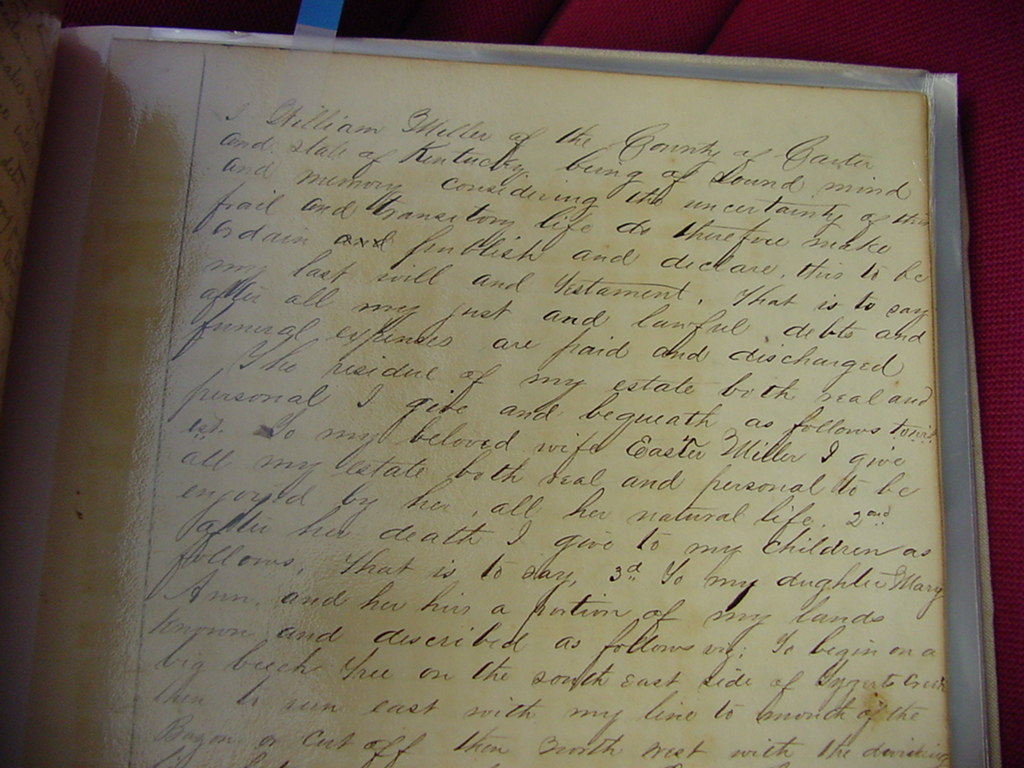 I William Miller of the County of Carter
and state of Kentucky being of sound mind
and memory considering the uncertainty of this
frail and transitory life do therefore make
ordain and publish and declare, this to be
my last will and testament. That is to say
after all my just and lawful debts and
funeral expenses are paid and discharged
The residue of my estate both real and
personal I give and bequeath as follows towit
1st. To my beloved wife Easter Miller I give
all my estate both real and personal to be
enjoyed by her, all her natural life. 2nd
after her death I give to my children as
follows, That is to say, 3d To my dughter Mary
Ann, and her hirs a portion of my lands
known and described as follows viz; To begin on a
big beech tree on the south east side of Tygerts Creek
then to run east with my line to mouth of the
or cut off then North west with the dividing